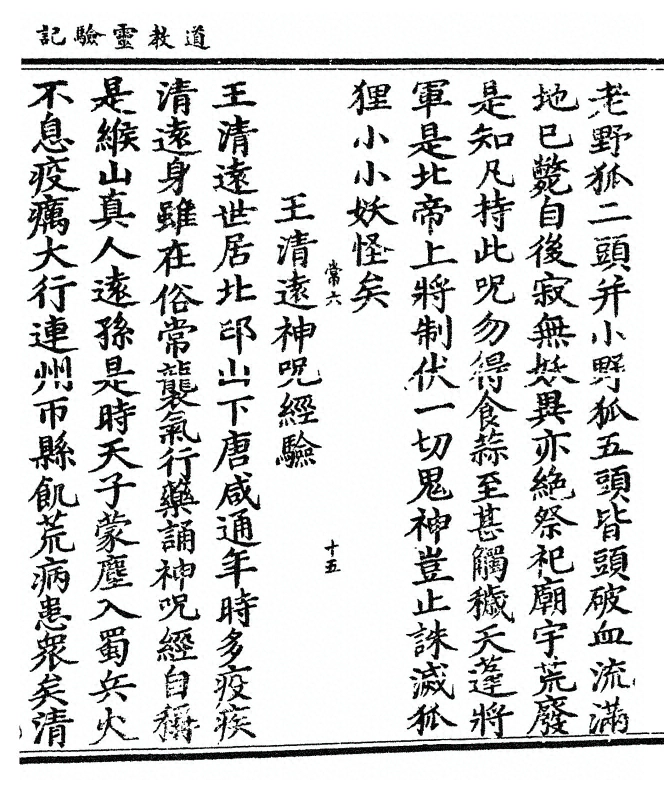 道教靈驗記
老野狐二頭并小野狐五頭皆頭破血流滿
地已斃自後寂無妖異亦絕祭祀廟宇荒廢
是知凡持此呪勿得食蒜至甚觸穢天蓬將
軍是北帝上將制伏一切鬼神豈止誅滅狐
狸小小妖怪矣
常六
十五
王清遠神呪經驗
王清遠世居北邙山下唐咸通年時多疫疾
清遠身雖在俗常襲氣行藥誦神呪經自稱
是緱山真人遠孫是時天子蒙塵入蜀兵火
不息疫癘大行連州帀縣飢荒病患衆矣清